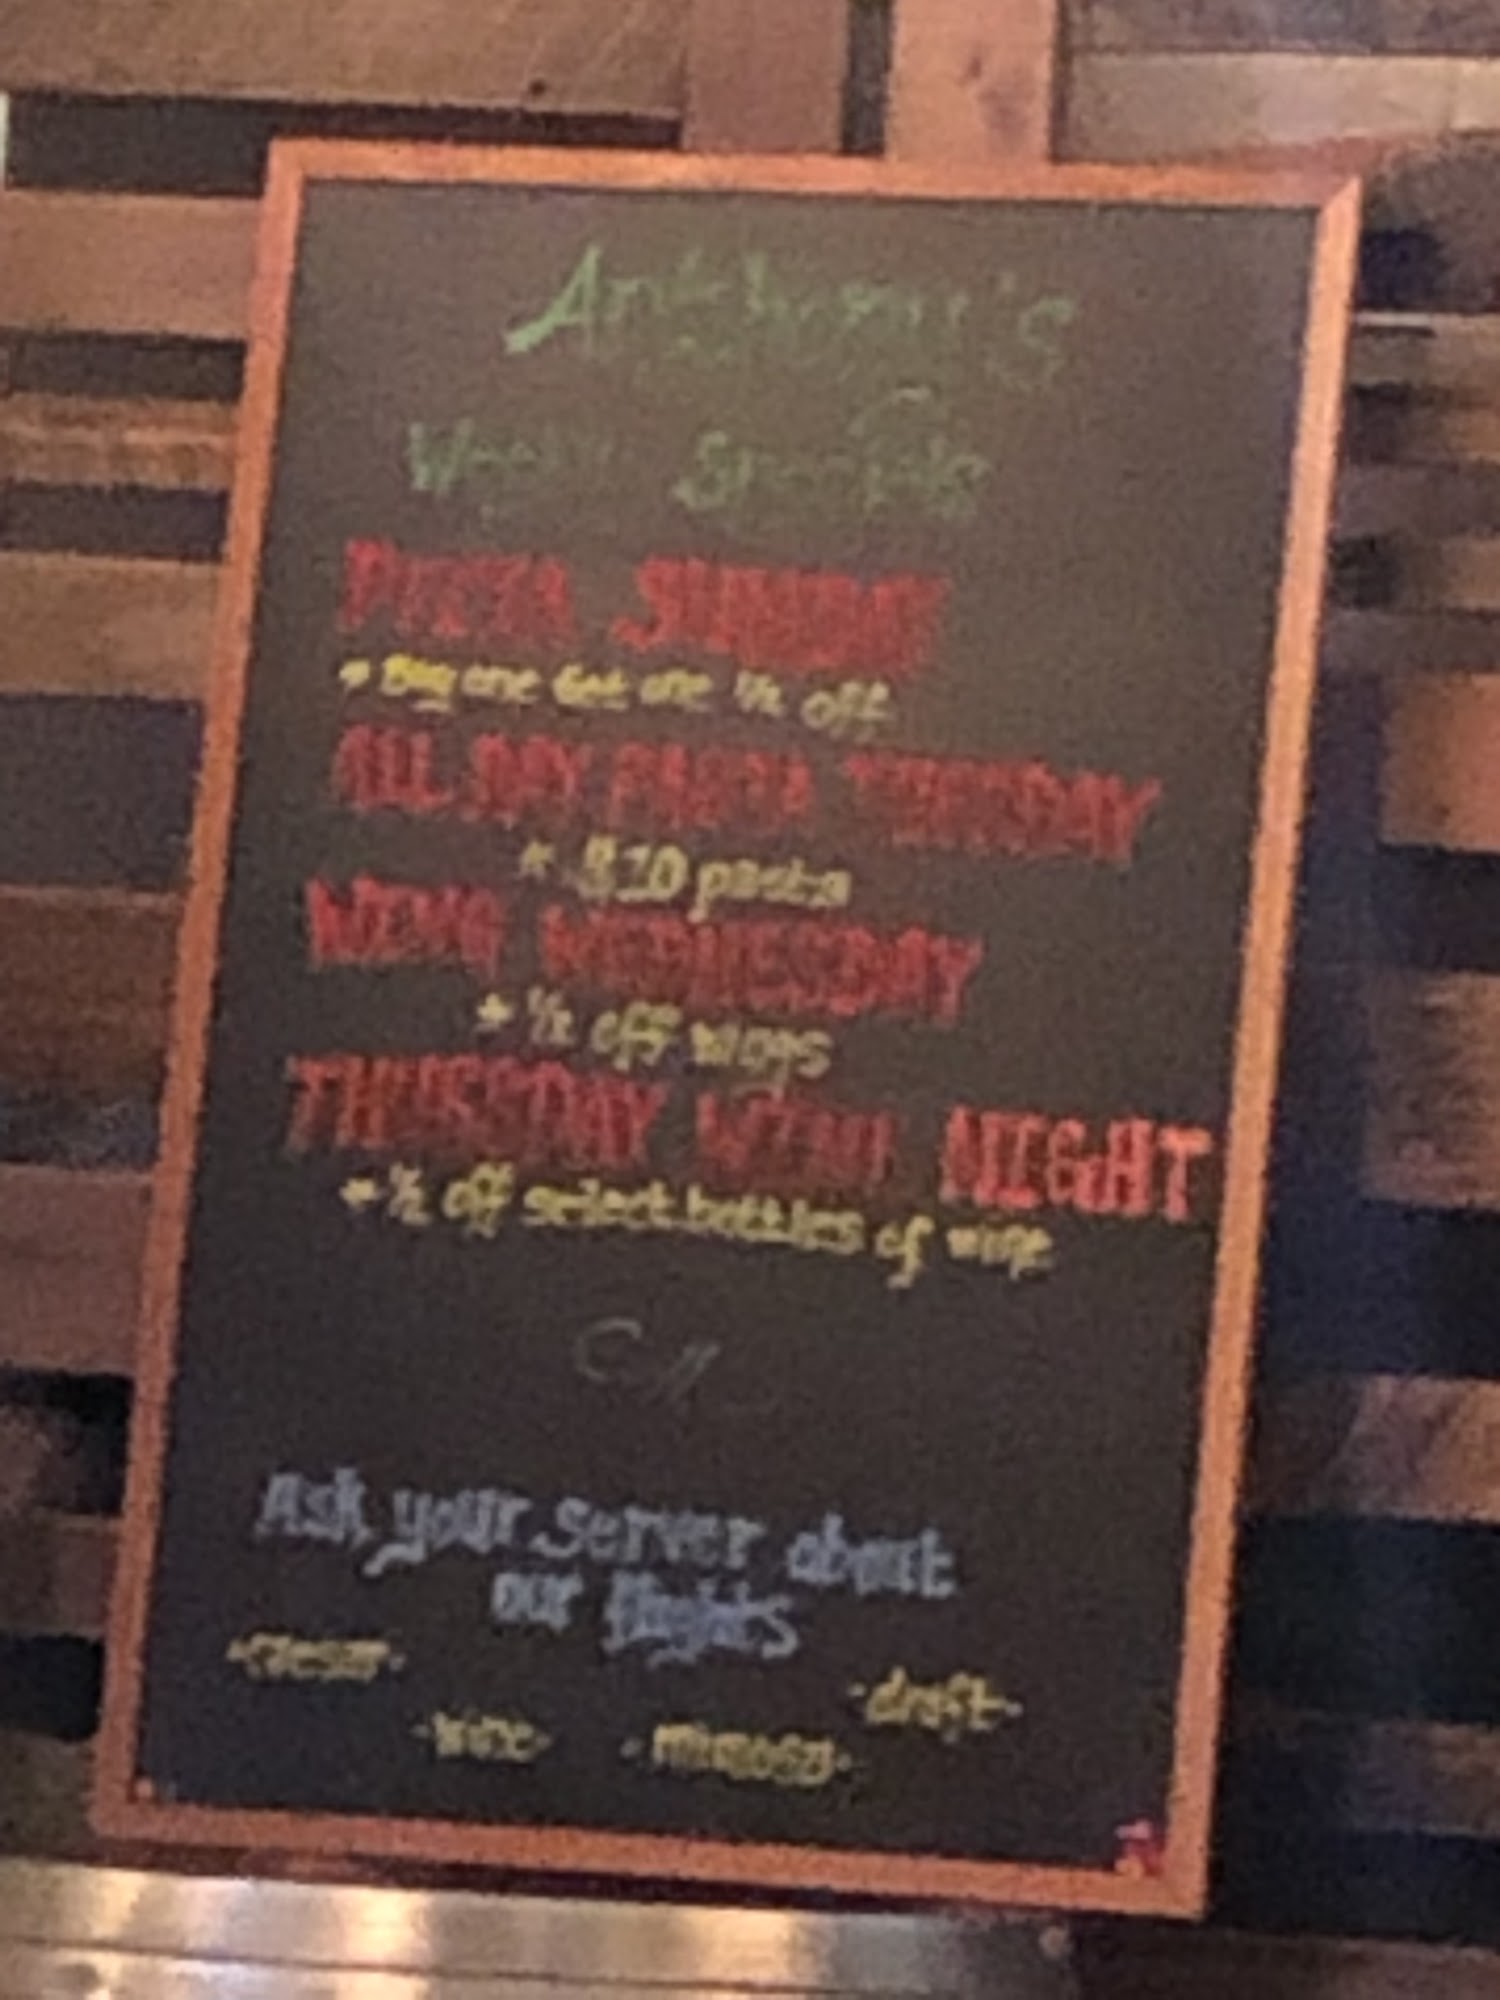 Anthony's
Weekly Specials
PIZZA SUNDAY
* Buy one Get one 1/2 off
ALL DAY PASTA TUESDAY
* $10 pasta
WING WEDNESDAY
* 1/2 off wings
THURSDAY WINE NIGHT
* 1/2 off select bottles of wine
Ask your server about
our flights
-draft-
-wine- -mimosa-